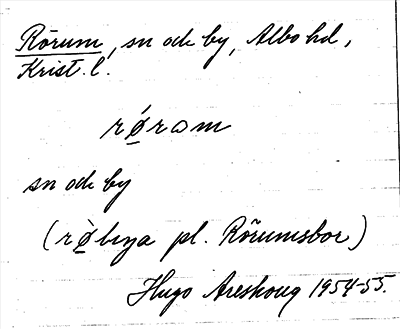 Rörum, sn och by, Albo hd,
Krist. l.
rǿram
sn och by
(rø̀bỵa pl. Rörumsbor)
Hugo Areskoug 1954-55.